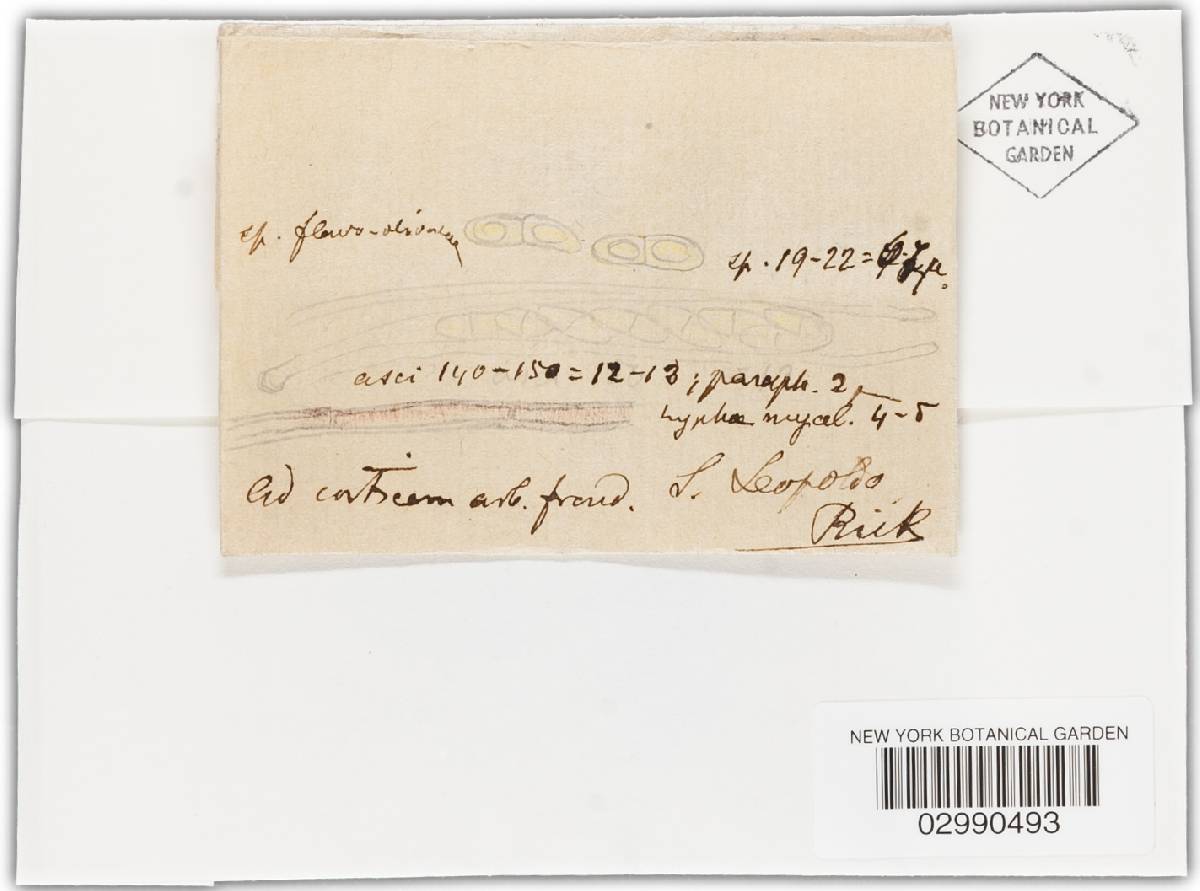 NEW YORK
BOTANICAL
GARDEN
sp. flavo-
sp. 19-22 =
asci 140-150 = 12-13; paraph. 2,
hyphae mycel. 4-5
Ad corticem arb. frond. S. Leopoldo
Rick
NEW YORK BOTANICAL GARDEN
02990493